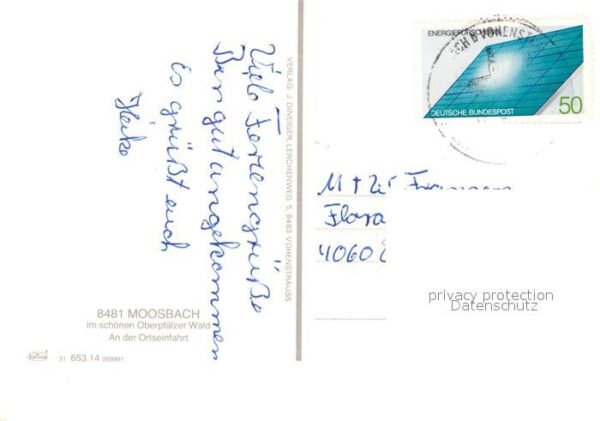 Viele Feriengrüße
Bin gut angekommen
Es grüßt euch
Heike
VERLAG: J. DINEIGER, LERCHENWEG 5, 8483 VOHENSTRAUSS
8481 MOOSBACH
im schönen Oberpfälzer Wald
An der Ortseinfahrt
31 653.14
ENERGIEFORSCHUNG
DEUTSCHE BUNDESPOST
50
VOHENST
M +
Flora
4060
privacy protection
Datenschutz